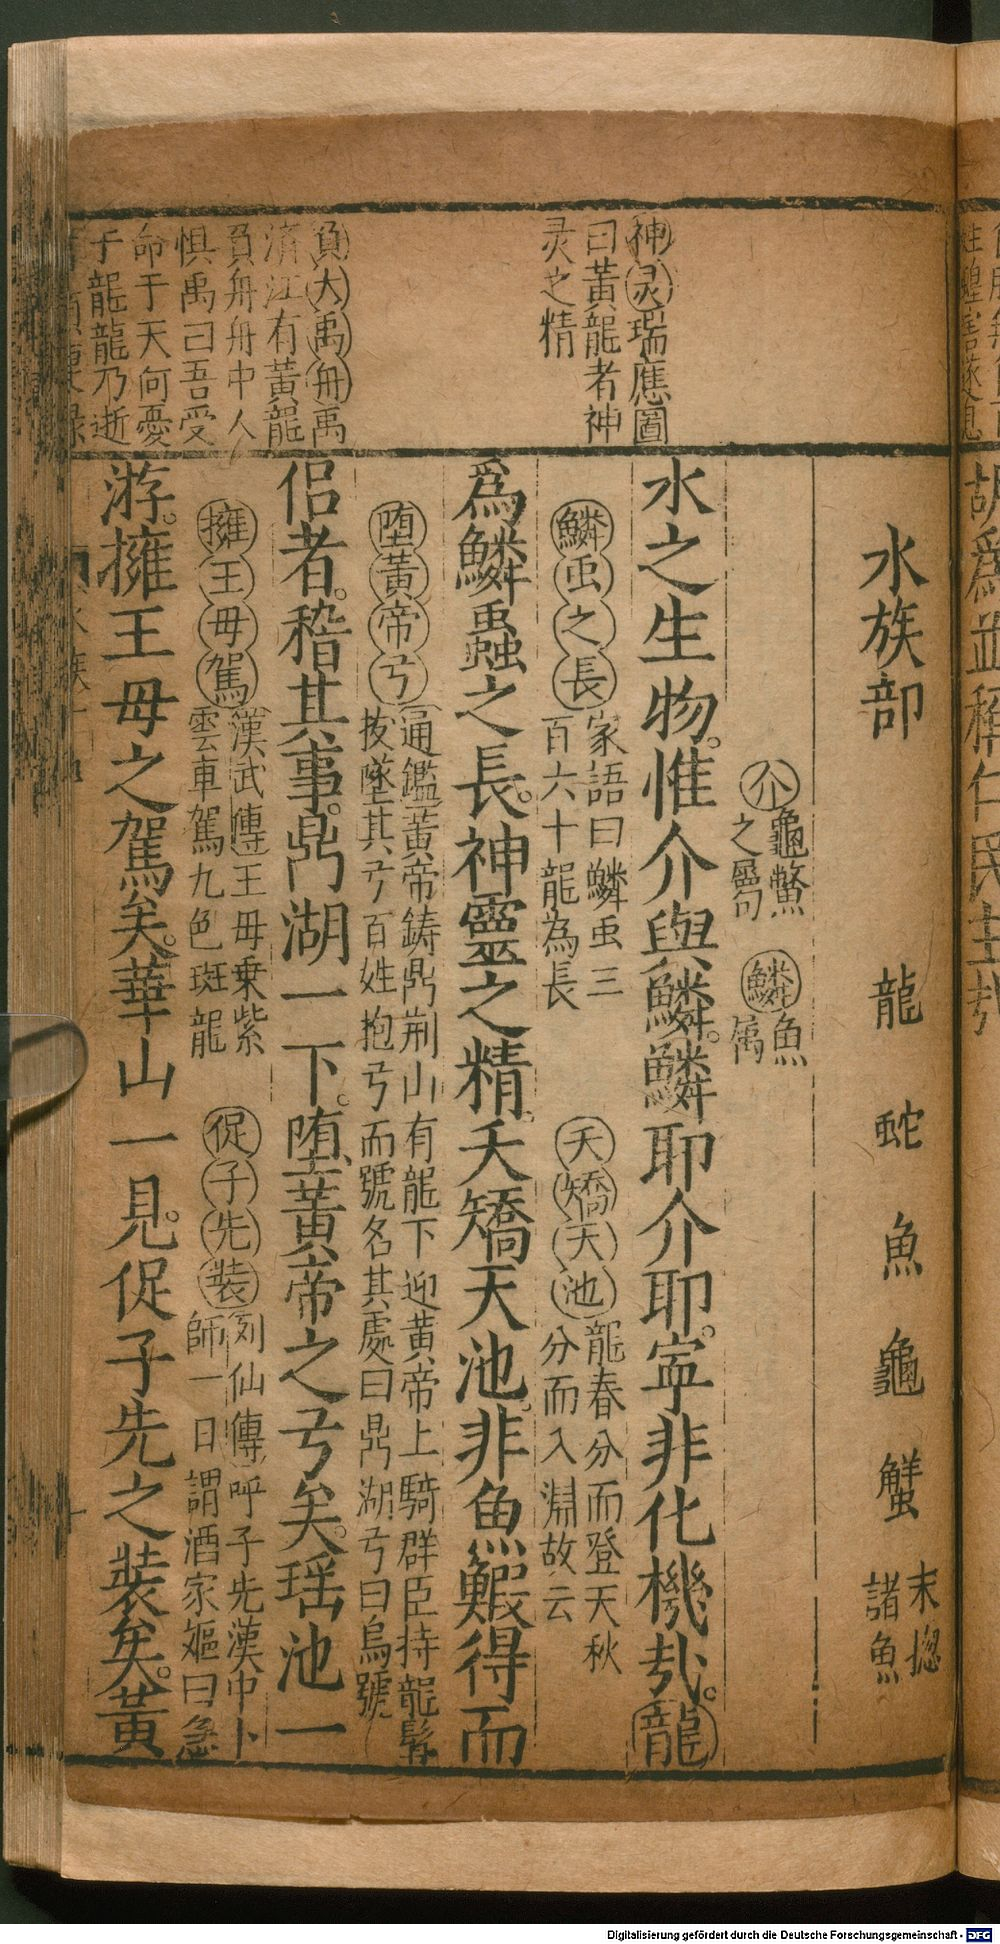 神灵瑞應圖
曰黃龍者神
灵之精
負大禹舟禹
濟江有黃龍
負舟舟中人
惧禹曰吾受
命于天何憂
于龍龍乃逝
水族部 龍 蛇 魚 龜 蟹 末揔諸魚
介龜鱉之屬 鱗魚属
水之生物惟介與鱗鱗耶介耶寕非化機㢤龍
鱗虫之長家語曰鱗虫三百六十龍為長 夭矯天池龍春分而登天秋分而入淵故云
爲鱗蟲之長神靈之精夭矯天池非魚鰕得而
堕黃帝弓通鑑黃帝鋳鼎荆山有龍下迎黄帝上騎群臣持龍髯拔墜其弓百姓抱弓而號名其處曰鼎湖弓曰烏號
侣者稽其事鼎湖一下堕黃帝之弓矣瑶池一
擁王母駕漢武傳王母乗紫雲車駕九色斑龍 促子先装列仙傳呼子先漢中卜師一日謂酒家嫗曰急
游擁王母之駕矣華山一見促子先之装矣黃
水族
Digitalisierung gefördert durch die Deutsche Forschungsgemeinschaft - DFG